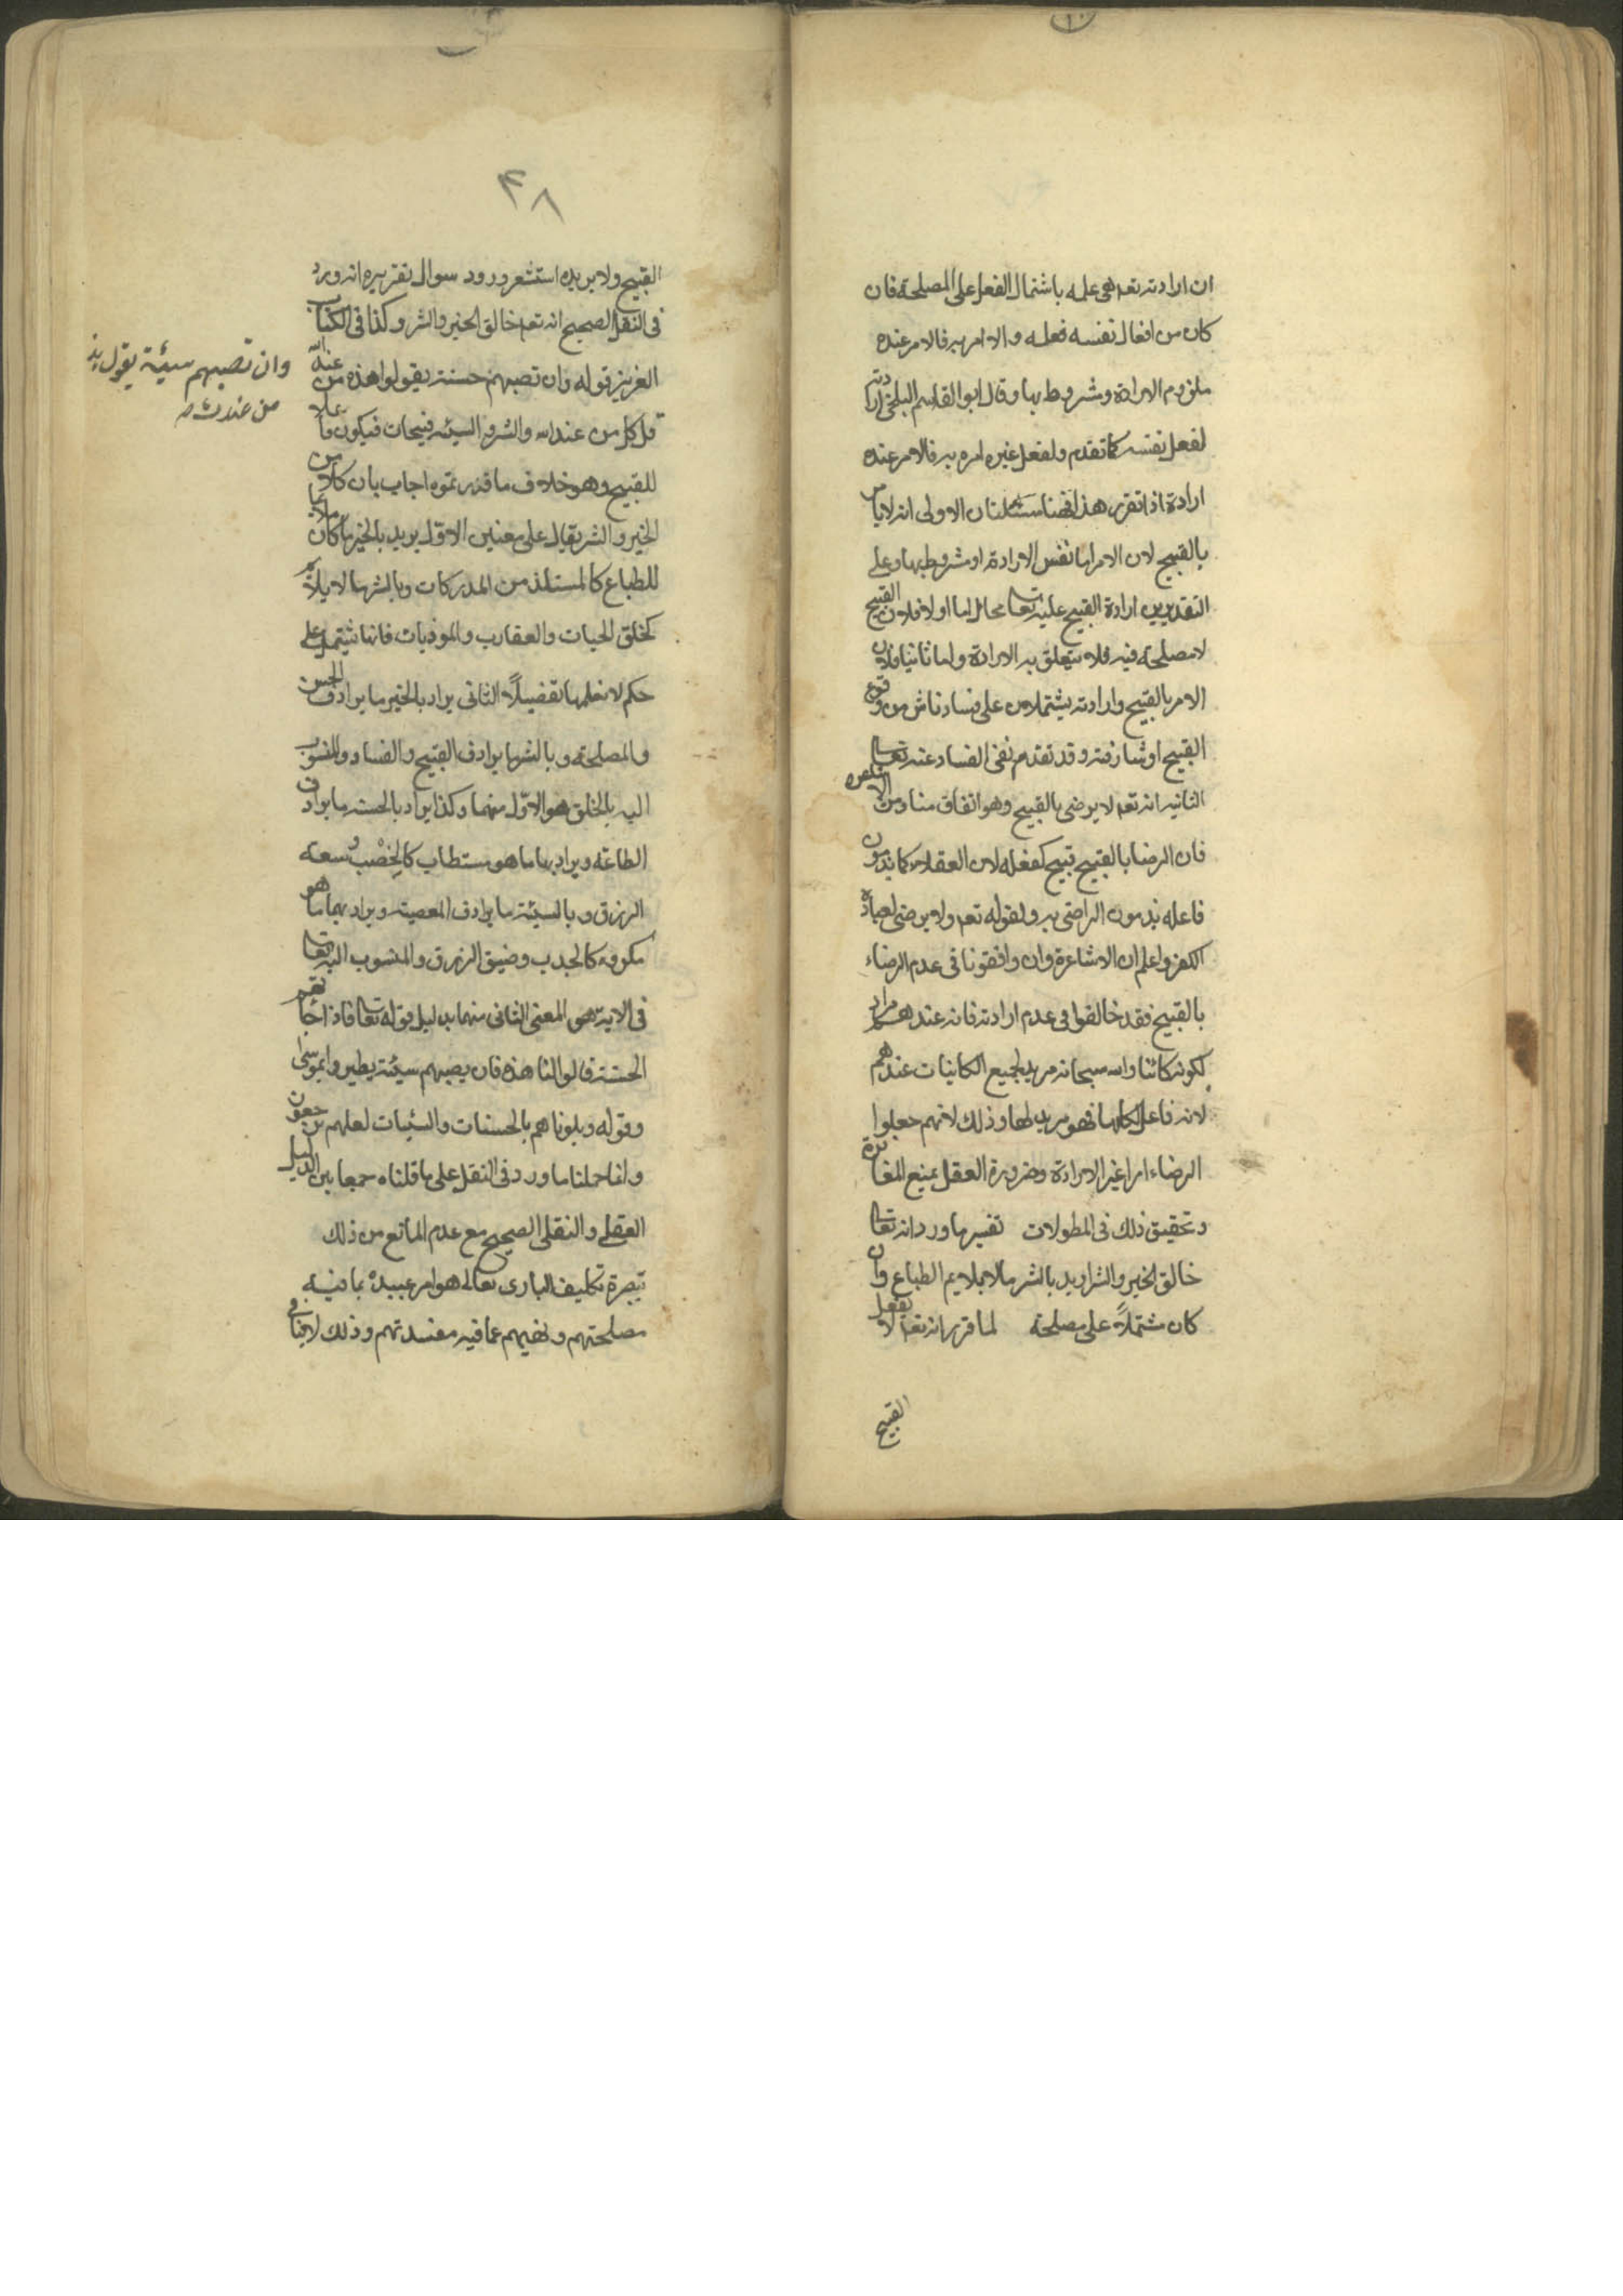 ان ارادته تعه هى علمه باشتمال الفعل على المصلحة فان
كان من افعال نفسه فعله والا امر به فالامر عنده
ملزوم الارادة ومشروط بها وقال ابو القاسم البلخى ارادته
لفعل نفسه كما تقدم ولفعل غيره امره به فالامر عنده
ارادة اذا تقرر هذا فهنا مسئلتان الاولى انه لا يامر
بالقبيح لان الامر اما نفس الارادة او مشروط بها وعلى
التقديرين ارادة القبيح عليه تعالى محال اما اولا فلان القبيح
لا مصلحة فيه فلا يتعلق به الارادة واما ثانيا فلان
الامر بالقبيح وارادته يشتملان على فساد ناش من وقوع
القبيح او مشارفته وقد تقدم نفى الفساد عنه تعالى
الثانيه انه تعه لا يرضى بالقبيح وهو اتفاق منا ومن الاشاعره
فان الرضا بالقبيح قبيح كفعله لان العقلاء كما يذمون
فاعله يذمون الراضى به ولقوله تعه ولا يرضى لعباده
الكفر واعلم ان الاشاعرة وان وافقونا فى عدم الرضاء
بالقبيح فقد خالفوا فى عدم ارادته فانه عندهم مراد
لكونه كائنا والله سبحانه مريد لجميع الكاينات عندهم
لانه فاعل لكلها فهو مريد لها وذلك لانهم جعلوا
الرضاء امرا غير الارادة وضرورة العقل يمنع المغايرة
وتحقيق ذلك فى المطولات تفسير ما ورد انه تعالى
خالق الخير والشر اريد بالشر مالا يلايم الطباع وان
كان مشتملاً على مصلحة لما قرر انه تعه لا يفعل
القبيح
٤٨
القبيح ولا يريده استشعر ورود سوال تقريره انه ورد
فى النقل الصحيح انه تعه خالق الخير والشر وكذا فى الكتاب
العزيز قوله وان تصبهم حسنة يقولوا هذه من عند الله
وان تصبهم سيئة يقولوا هذه
من عندك صه
قل كل من عند الله والشر والسيئه قبيحان فيكون فاعلا
للقبيح وهو خلاف ما قررتموه اجاب بان كلا من
الخير والشر يقال على معنيين الاوّل يريد بالخير ما كان ملايما
للطباع كالمستلذ من المدركات وبالشر ما لا يلايم
كخلق الحيات والعقارب والموذيات فانها يشتمل على
حكم لا نعلمها تفصيلاً الثانى يراد بالخير ما يرادف الحسن
والمصلحة وبالشر ما يرادف القبيح والفساد والمنسوب
اليه بالخلق هو الاوّل منهما وكذا يراد بالحسنه ما يرادف
الطاعة ويراد بها ما هو مستطاب كالخصب وسعة
الرزق وبالسيئة ما يرادف المعصيه ويراد بها ما هو
مكروه كالجدب وضيق الرزق والمنسوب اليه تعالى
فى الاية هو المعنى الثانى منهما بدليل قوله تعالى فاذا جاءتهم
الحسنة قالوا لنا هذه فان يصبهم سيئة يطيروا بموسى
وقوله وبلوناهم بالحسنات والسئيات لعلهم يرجعون
وانما حملنا ما ورد فى النقل على ما قلناه جمعا بين الدليل
العقلى والنقلى الصحيح مع عدم المانع من ذلك
تبصرة تكليف البارى تعالى هو امر عبيده بما فيه
مصلحتهم ونهيهم عما فيه مفسدتهم وذلك لا ينافى